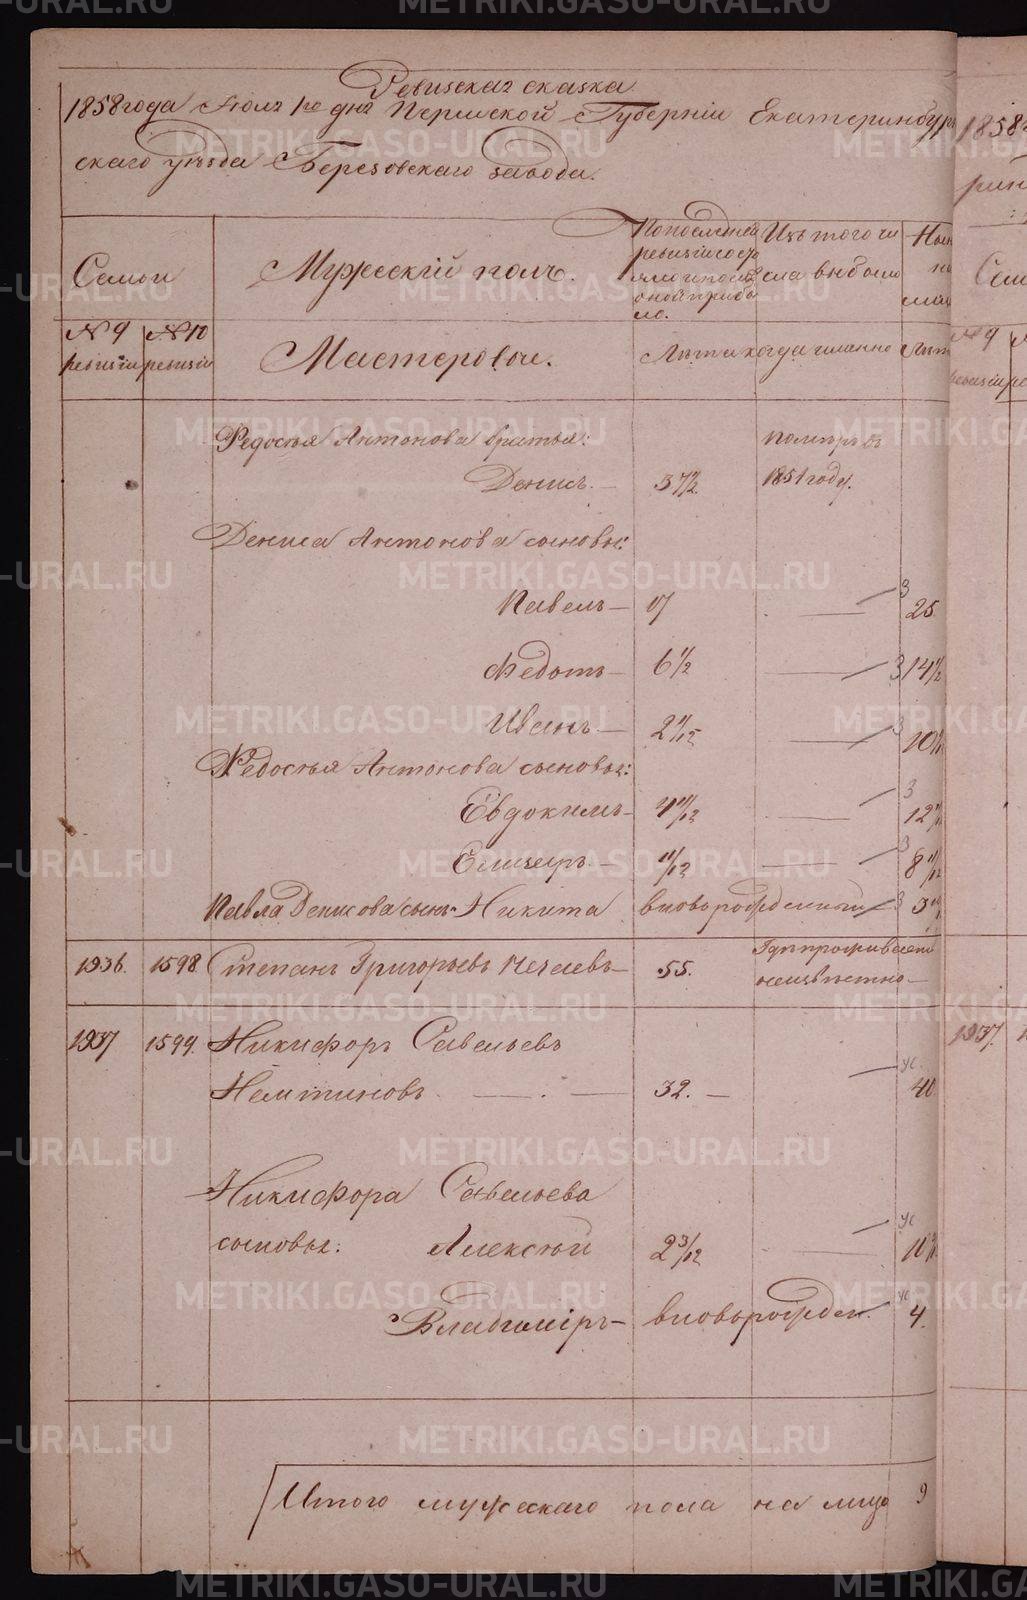 Ревизская сказка
1858 года Июля 1го дня Пермской Губерніи Екатеринбур
скаго уѣзда Березовскаго завода.
Семьи
Мужескій полъ.
По последней ревизіи состо
Изъ того чи
сла выбыло
№ 9 ревизіи
№ 10 ревизіи
Мастеровые.
Лѣта
когда именно
Лѣт
Федосѣя Антонова братья:
Денисъ. — 37½ помѣръ въ 1851 году.
Дениса Антонова сыновья:
Павелъ — 17 — 3 25
Федотъ — 6½ — 3 14½
Иванъ — 2 11/12 — 3 10
Федосѣя Антонова сыновья:
Евдокимъ — 4 11/12 — 3 12
Елизаръ — 11/12 — 3 8 11/12
Павла Денисова сынъ Никита вновьрожденный 3 3
1936. 1598. Степанъ Григорьевъ Нечаевъ — 55. Гдѣ проживаетъ
неизвѣстно —
1937 1599. Никифоръ Савельевъ
32. — 40
Никифора Савельева
сыновья: Алексѣй 2 3/12 — 10
Владиміръ — вновьрожден. 4.
Итого мужескаго пола на лицо 9
1858
рин
Сем
№ 9
ревизіи
1937.
METRIKI.GASO-URAL.RU